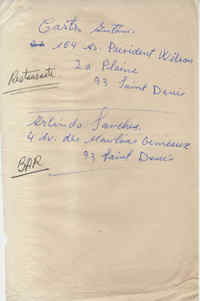 Castro Gustavo
164 Av. President Wilson
La Plaine
93 Saint Denis
Restaurante
Arlindo Sanches
4 Av. des Moulins Gemeaux
93 Saint Denis
BAR